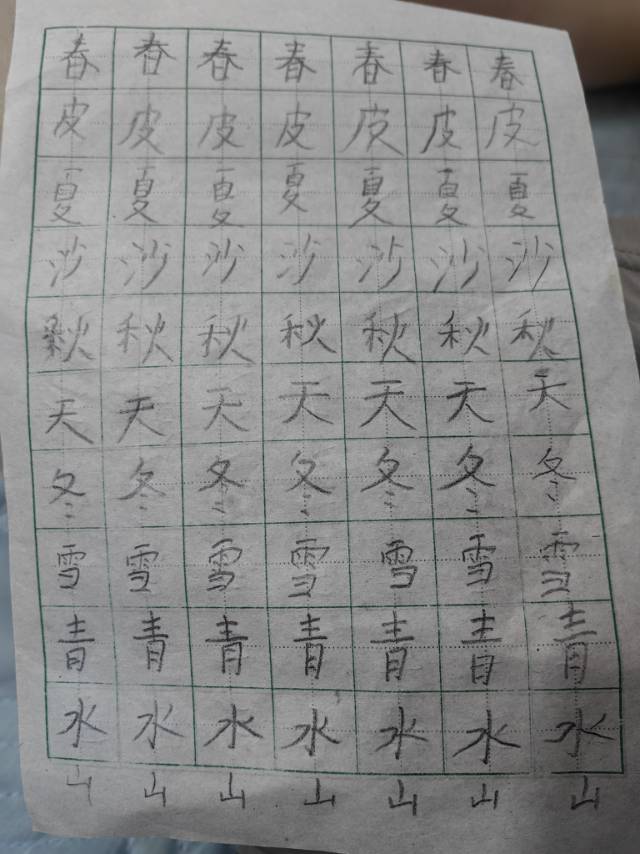 春春春春春春春
皮皮皮皮皮皮皮
夏夏夏夏夏夏夏
沙沙沙沙沙沙沙
秋秋秋秋秋秋秋
天天天天天天天
冬冬冬冬冬冬冬
雪雪雪雪雪雪雪
青青青青青青青
水水水水水水水
山山山山山山山